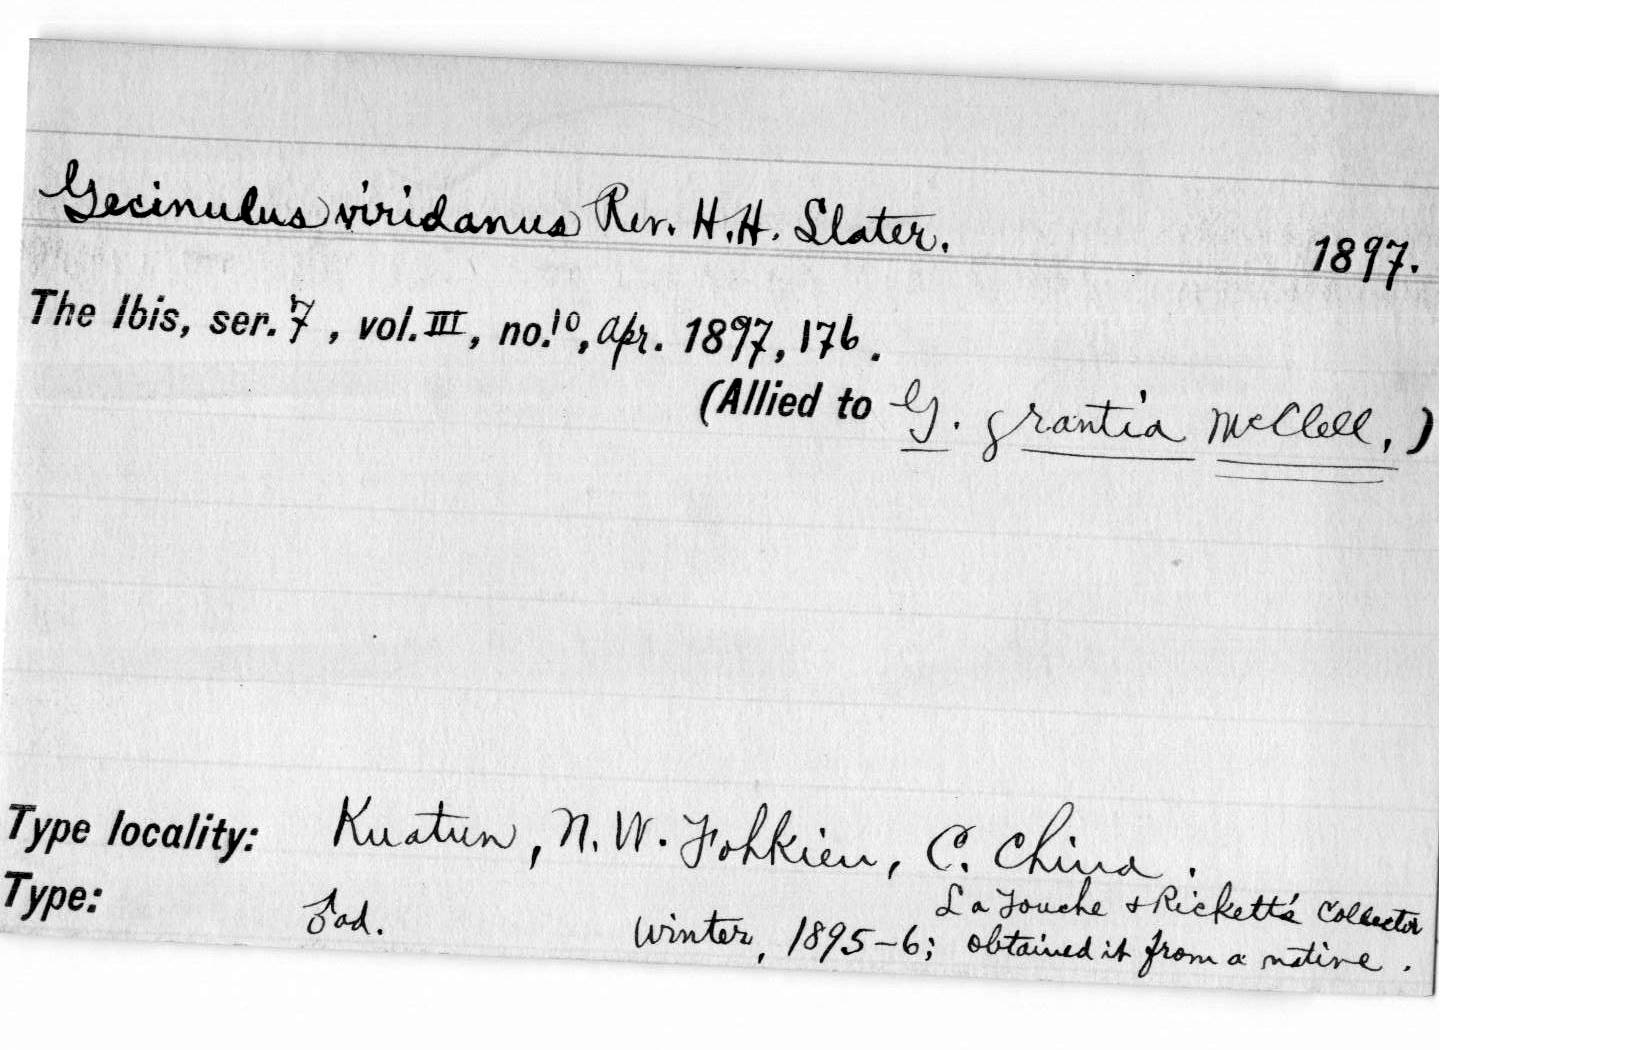 Gecinulus viridanus Rev. H.H. Slater. 1897.
The Ibis, ser. 7, vol. III, no. 10, Apr. 1897, 176.
(Allied to G. grantia McClell.)
Type locality: Kuatun, N.W. Fohkien, C. China.
Type: ♂ ad. Winter, 1895-6; La Touche & Rickett's Collector
obtained it from a native.